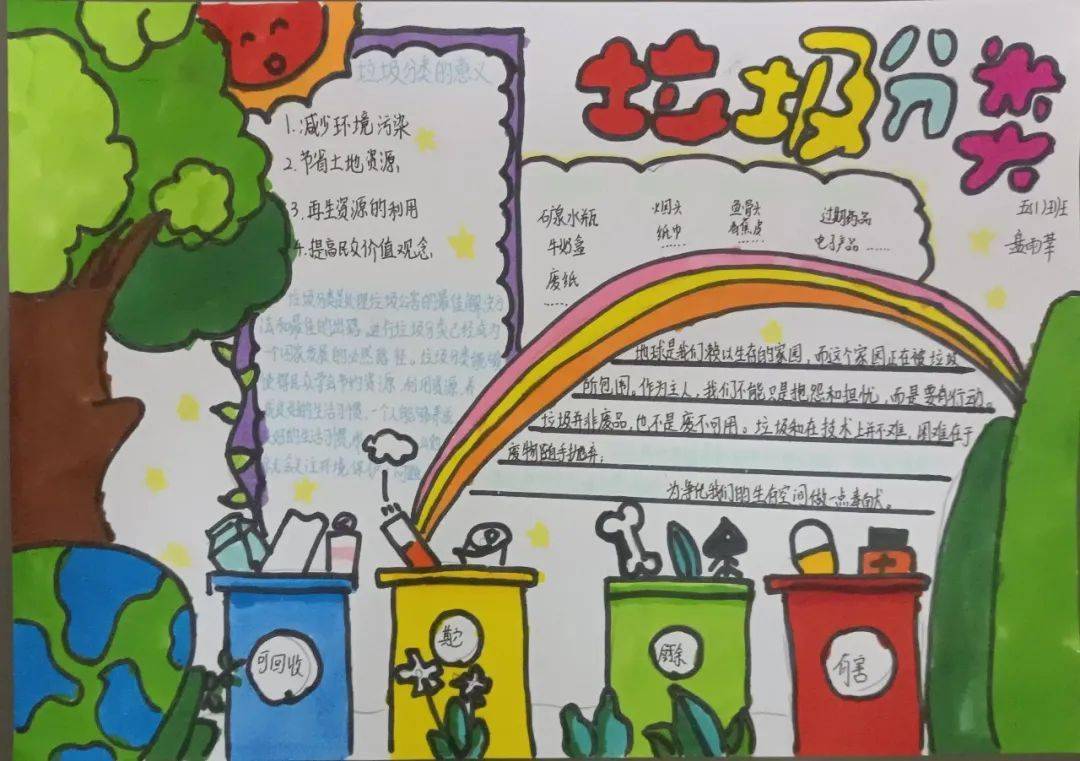 垃圾分类
五(1)班
垃圾分类的意义
1.减少环境污染
2.节省土地资源
3.再生资源的利用
4.提高民众价值观念
垃圾分类是处理垃圾公害的最佳解决方
法和最佳的出路。进行垃圾分类已经成为
一个国家发展的必然路径。垃圾分类能够
使得民众学会节约资源、利用资源,养
成良好的生活习惯,一个人能够养成
良好的生活习惯,
关注环境保护问题
矿泉水瓶
牛奶盒
废纸
......
烟头
纸巾
......
鱼骨头
香蕉皮
......
过期药品
电子产品 ......
地球是我们赖以生存的家园,而这个家园正在被垃圾
所包围。作为主人,我们不能只是抱怨和担忧,而是要有行动。
垃圾并非废品,也不是废不可用。垃圾和在技术上并不难,困难在于
废物随手抛弃;
为净化我们的生存空间做一点奉献。
可回收
其它
厨余
有害